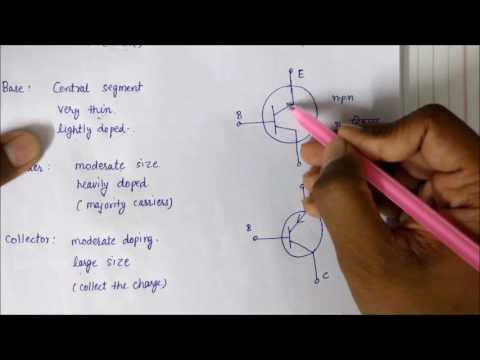 Base: Central segment
very thin.
lightly doped.
moderate size
heavily doped
(majority carriers)
Collector: moderate doping.
large size
(collect the charge)
E
B
npn
B
C